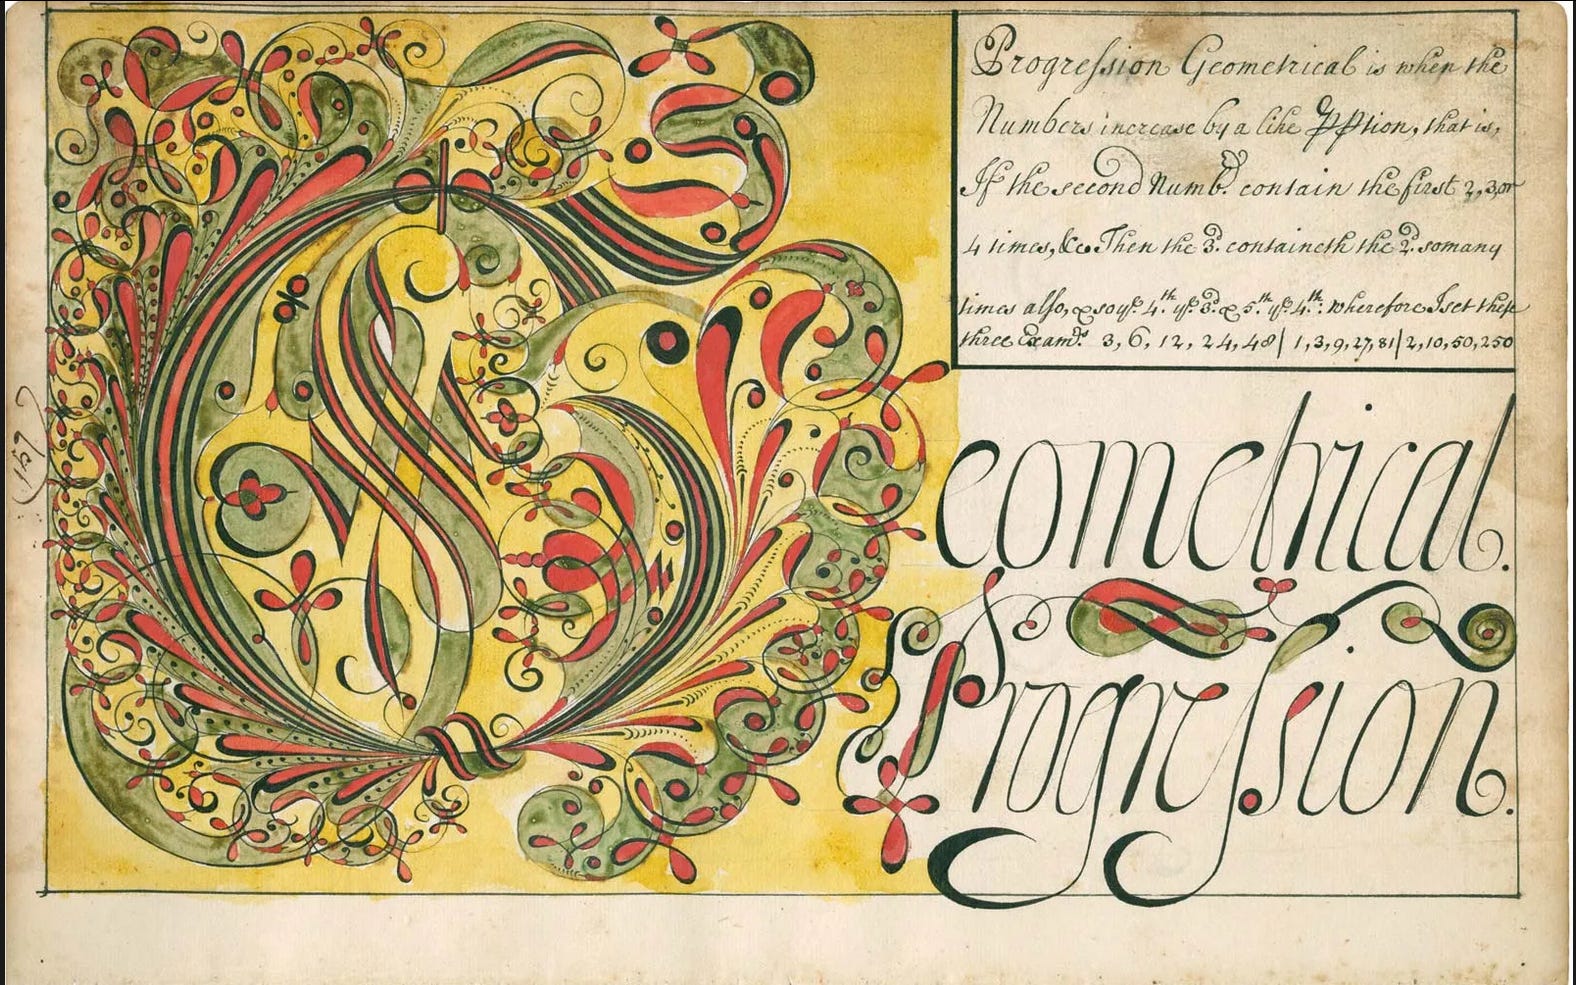 Progression Geometrical is when the
Numbers increase by a like Ꝓꝑtion, that is,
If the second Numbr. contain the first 2, 3, or
4 times, &c. Then the 3d. containeth the 2d. so many
times also, & so ye. 4th. ye. 3d. & 5th. ye. 4th.: wherefore I set these
three Exam ds. 3, 6, 12, 24, 48 | 1, 3, 9, 27, 81 | 2, 10, 50, 250
Geometrical.
Progression.
(157)